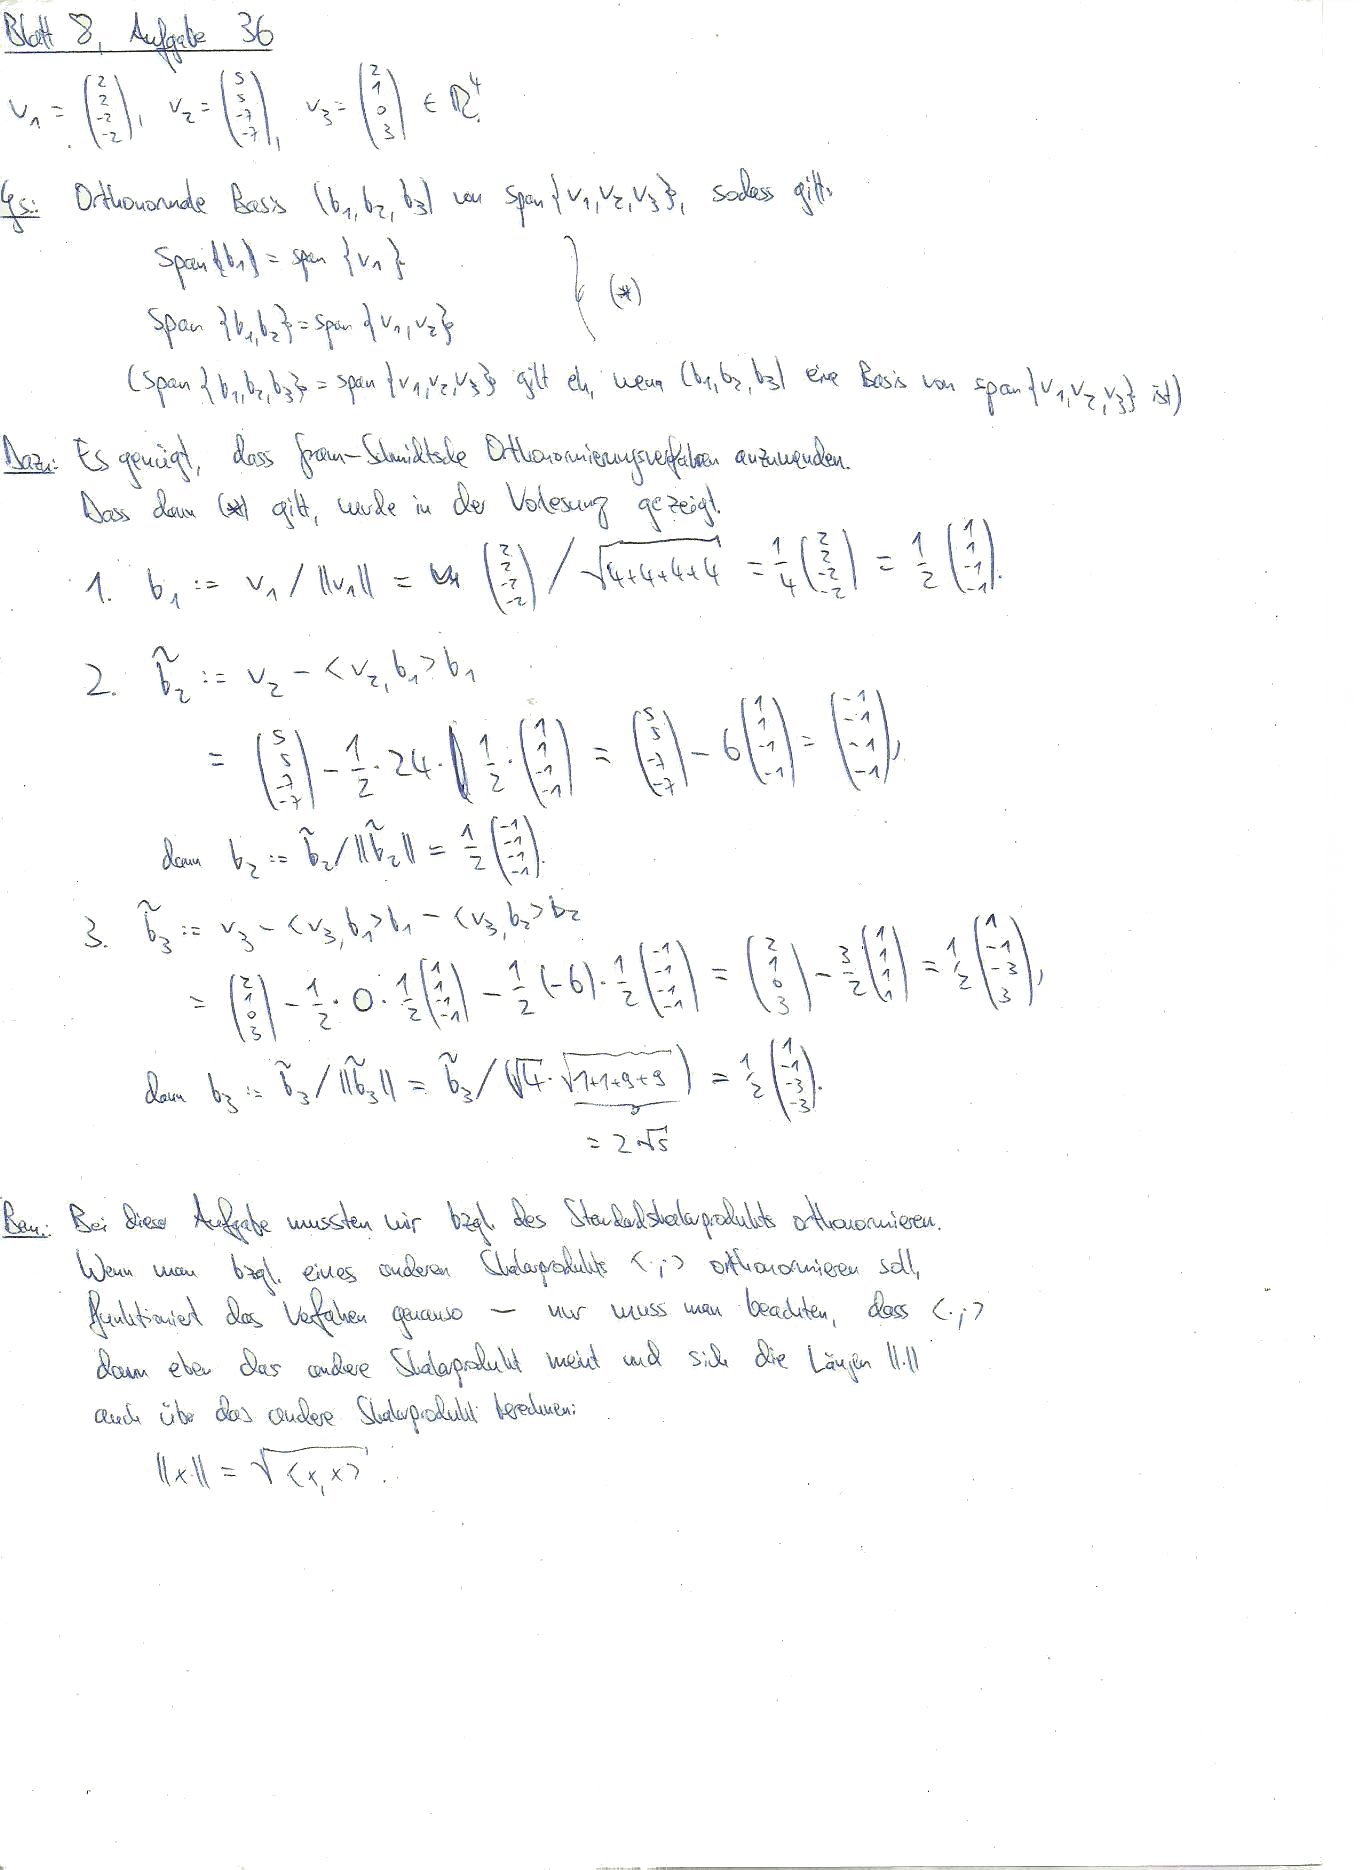 Blatt 8, Aufgabe 36
v₁ = (2 2 -2 -2), v₂ = (5 5 -7 -7), v₃ = (2 1 0 3) ∈ ℝ⁴.
Gs: Orthonormale Basis (b₁, b₂, b₃) von span{v₁, v₂, v₃}, sodass gilt:
span{b₁} = span {v₁}
(*)
span {b₁, b₂} = span {v₁, v₂}
(span {b₁, b₂, b₃} = span {v₁, v₂, v₃} gilt eh, wenn (b₁, b₂, b₃) eine Basis von span{v₁, v₂, v₃} ist)
Dazu: Es genügt, dass Gram-Schmidtsche Orthonormierungsverfahren anzuwenden.
Dass dann (*) gilt, wurde in der Vorlesung gezeigt.
1. b₁ := v₁ / ||v₁|| = (2 2 -2 -2) / √(4+4+4+4) = 1/4 (2 2 -2 -2) = 1/2 (1 1 -1 -1).
2. b̃₂ := v₂ - <v₂, b₁> b₁
= (5 5 -7 -7) - 1/2 · 24 · 1/2 · (1 1 -1 -1) = (5 5 -7 -7) - 6 (1 1 -1 -1) = (-1 -1 -1 -1),
dann b₂ := b̃₂ / ||b̃₂|| = 1/2 (-1 -1 -1 -1).
3. b̃₃ := v₃ - <v₃, b₁> b₁ - <v₃, b₂> b₂
= (2 1 0 3) - 1/2 · 0 · 1/2 (1 1 -1 -1) - 1/2 (-6) · 1/2 (-1 -1 -1 -1) = (2 1 0 3) - 3/2 (1 1 1 1) = 1/2 (1 -1 -3 3),
dann b₃ := b̃₃ / ||b̃₃|| = b̃₃ / (√4 · √(1+1+9+9)) = 1/2 (1 -1 -3 -3).
= 2√5
Bem.: Bei dieser Aufgabe mussten wir bzgl. des Standardskalarprodukts orthonormieren.
Wenn man bzgl. eines anderen Skalarprodukts <·,·> orthonormieren soll,
funktioniert das Verfahren genauso – nur muss man beachten, dass <·,·>
dann eben das andere Skalarprodukt meint und sich die Längen ||·||
auch über das andere Skalarprodukt berechnen:
||x|| = √<x, x>.